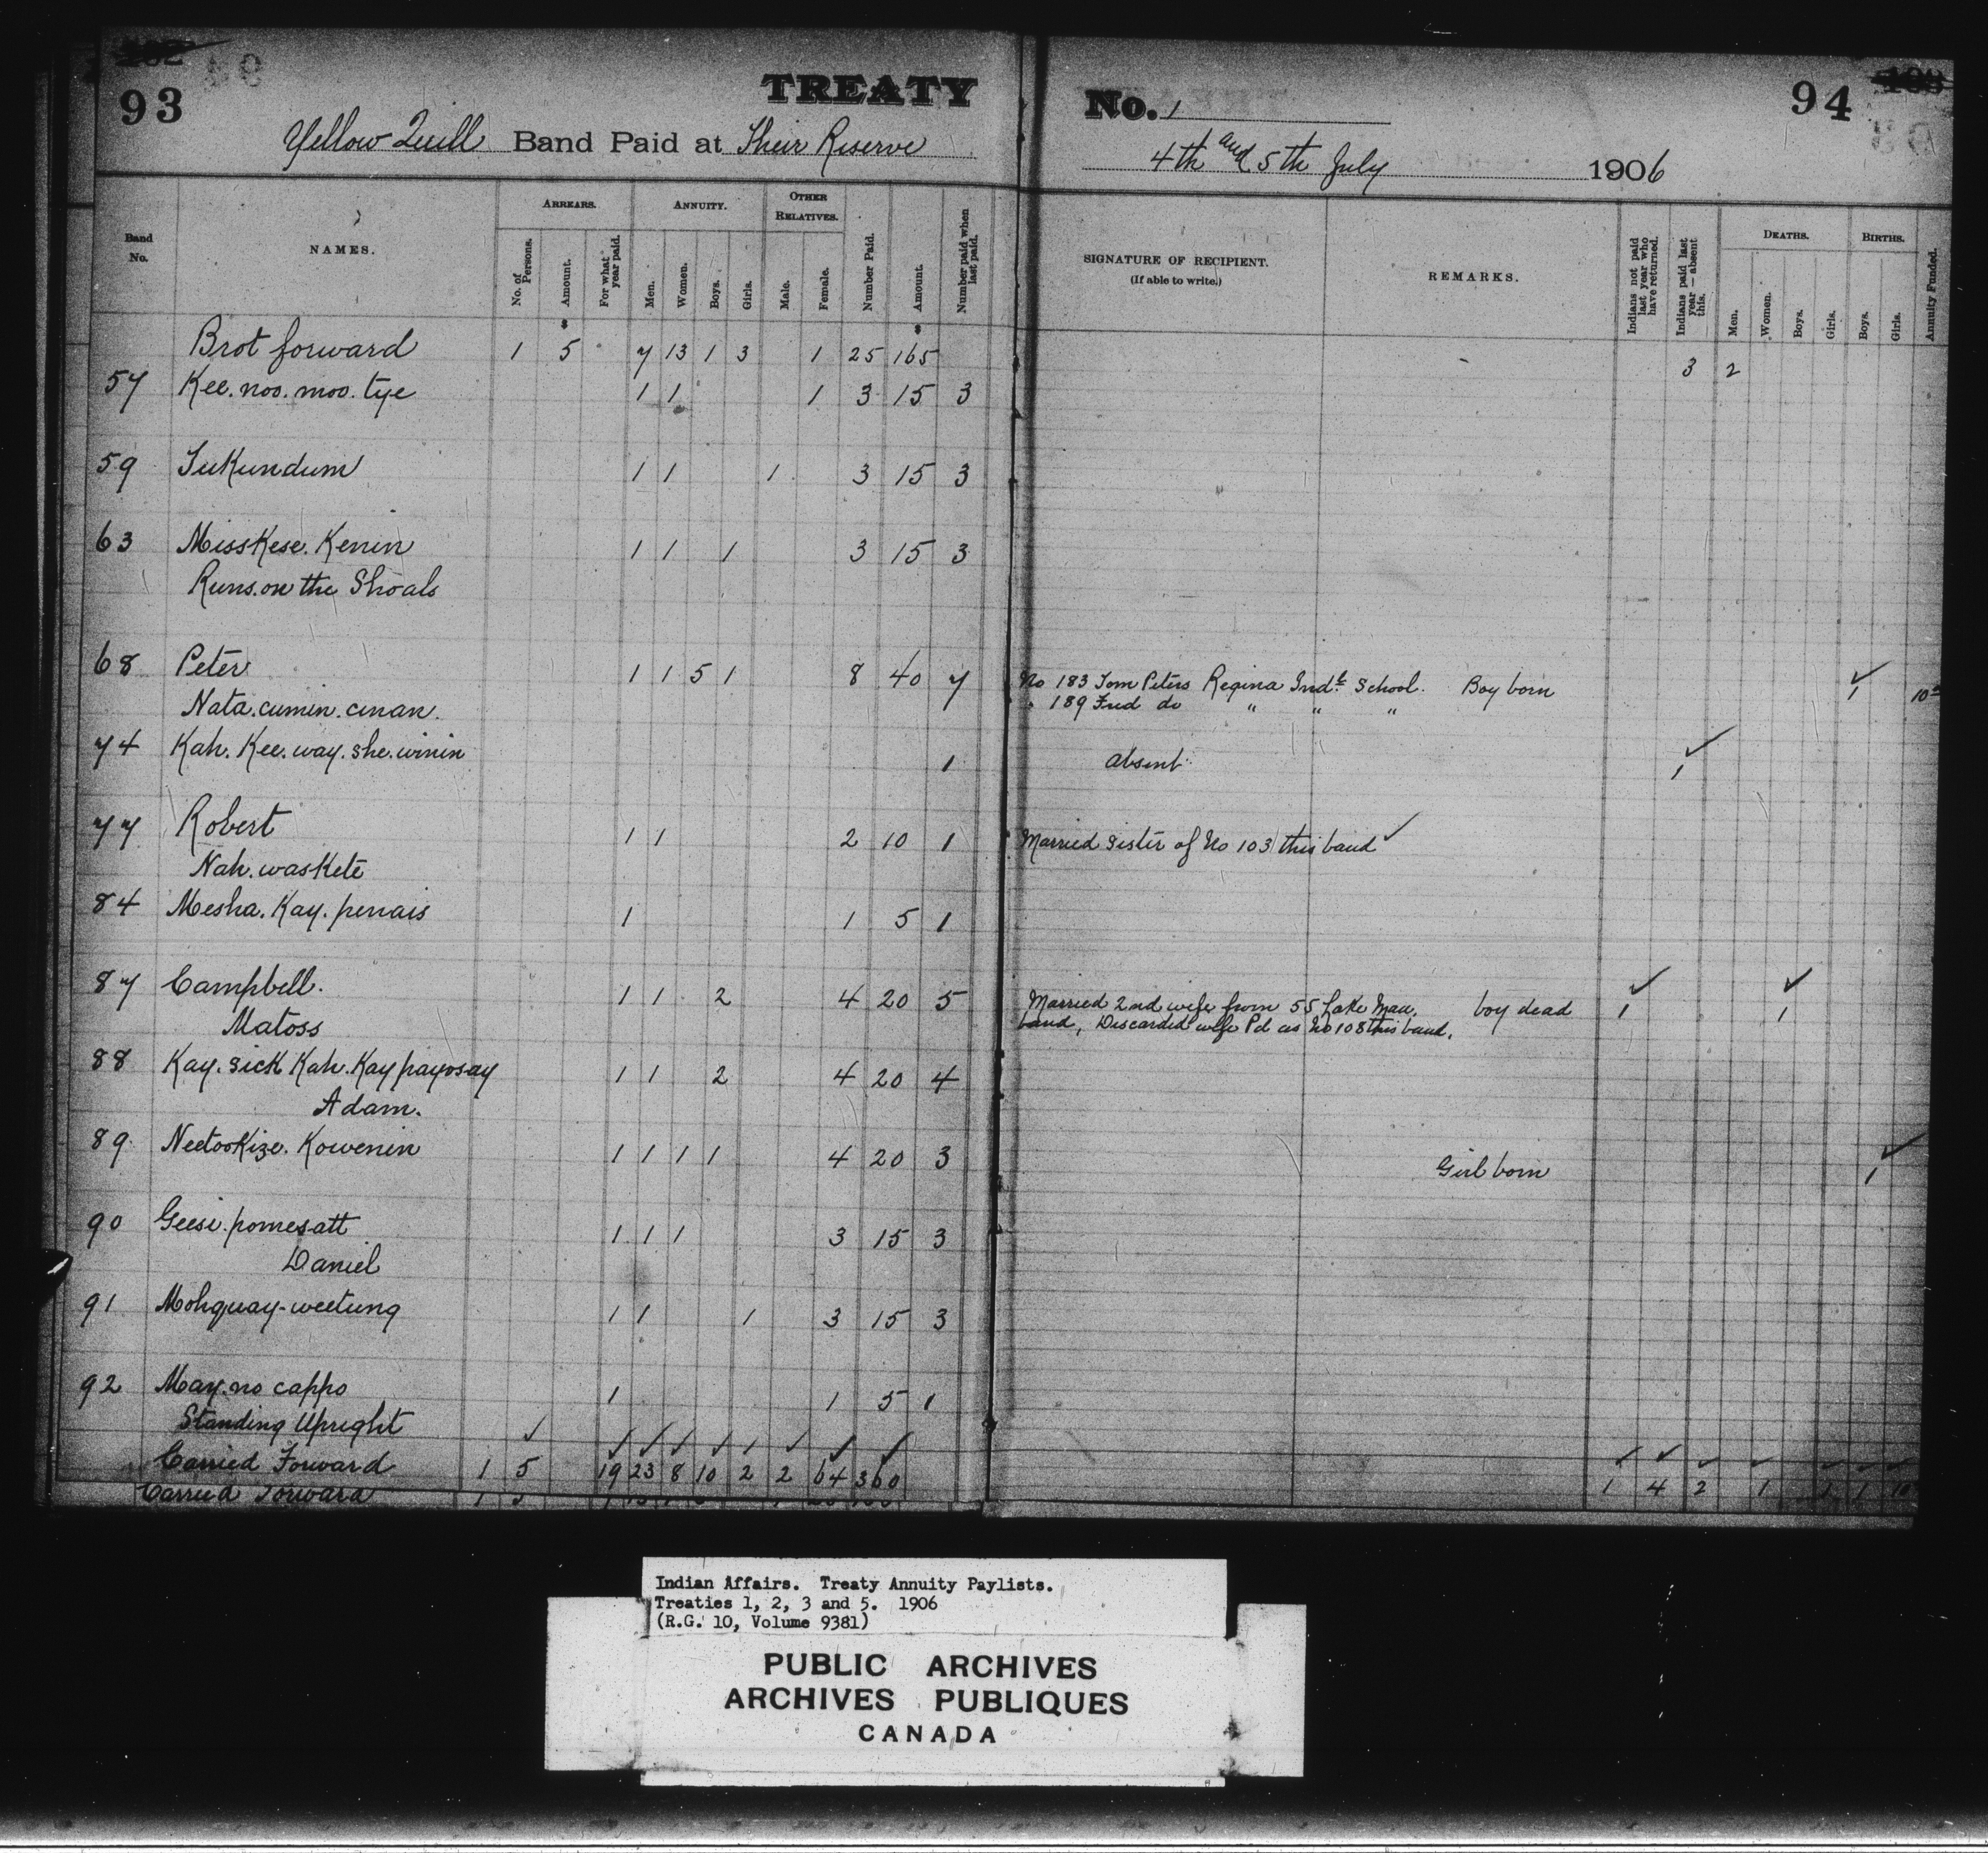 93
TREATY
Yellow Quill Band Paid at Their Reserve
No. 1
94
4th and 5th July 1906
Band No.
NAMES.
ARREARS.
No. of Persons.
Amount.
For what year paid.
ANNUITY.
Men.
Women.
Boys.
Girls.
OTHER RELATIVES.
Male.
Female.
Number Paid.
Amount.
Number paid when last paid.
SIGNATURE OF RECIPIENT.
(If able to write.)
REMARKS.
Indians not paid last year who have returned.
Indians paid last year—absent this.
DEATHS.
Men.
Women.
Boys.
Girls.
BIRTHS.
Boys.
Girls.
Annuity Funded.
$ $
Brot forward 1 5 7 13 1 3 1 25 165 3 2
57 Kee. noo. moo. tye 1 1 1 3 15 3
59 Tukundum 1 1 1 3 15 3
63 MissKese. Kenin 1 1 1 3 15 3
Runs. on the Shoals
68 Peter 1 1 5 1 8 40 7 No 183 Tom Peters Regina Indl. School. Boy born 1 10
Nata. cumin. cinan. " 189 Fred do " " "
74 Kah. Kee. way. she. winin 1 absent 1
77 Robert 1 1 2 10 1 Married sister of No 103 this band
Nah. waskete
84 Mesha. Kay. penais 1 1 5 1
87 Campbell. 1 1 2 4 20 5 Married 2nd wife from 55 Lake Man. boy dead 1 1
Matoss band, Discarded wife Pd as No 108 this band.
88 Kay. sick Kah. Kay payosay 1 1 2 4 20 4
Adam.
89 Neetooskize. Kowenin 1 1 1 1 4 20 3 Girl born 1
90 Geesi. pomesatt 1 1 1 3 15 3
Daniel
91 Mohquay-weetung 1 1 1 3 15 3
92 May. no cappo 1 1 5 1
Standing Upright
Carried Forward 1 5 19 23 8 10 2 2 64 360 1 4 2 1 1 1 10
Carried Forward
Indian Affairs. Treaty Annuity Paylists.
Treaties 1, 2, 3 and 5. 1906
(R.G. 10, Volume 9381)
PUBLIC ARCHIVES
ARCHIVES PUBLIQUES
CANADA